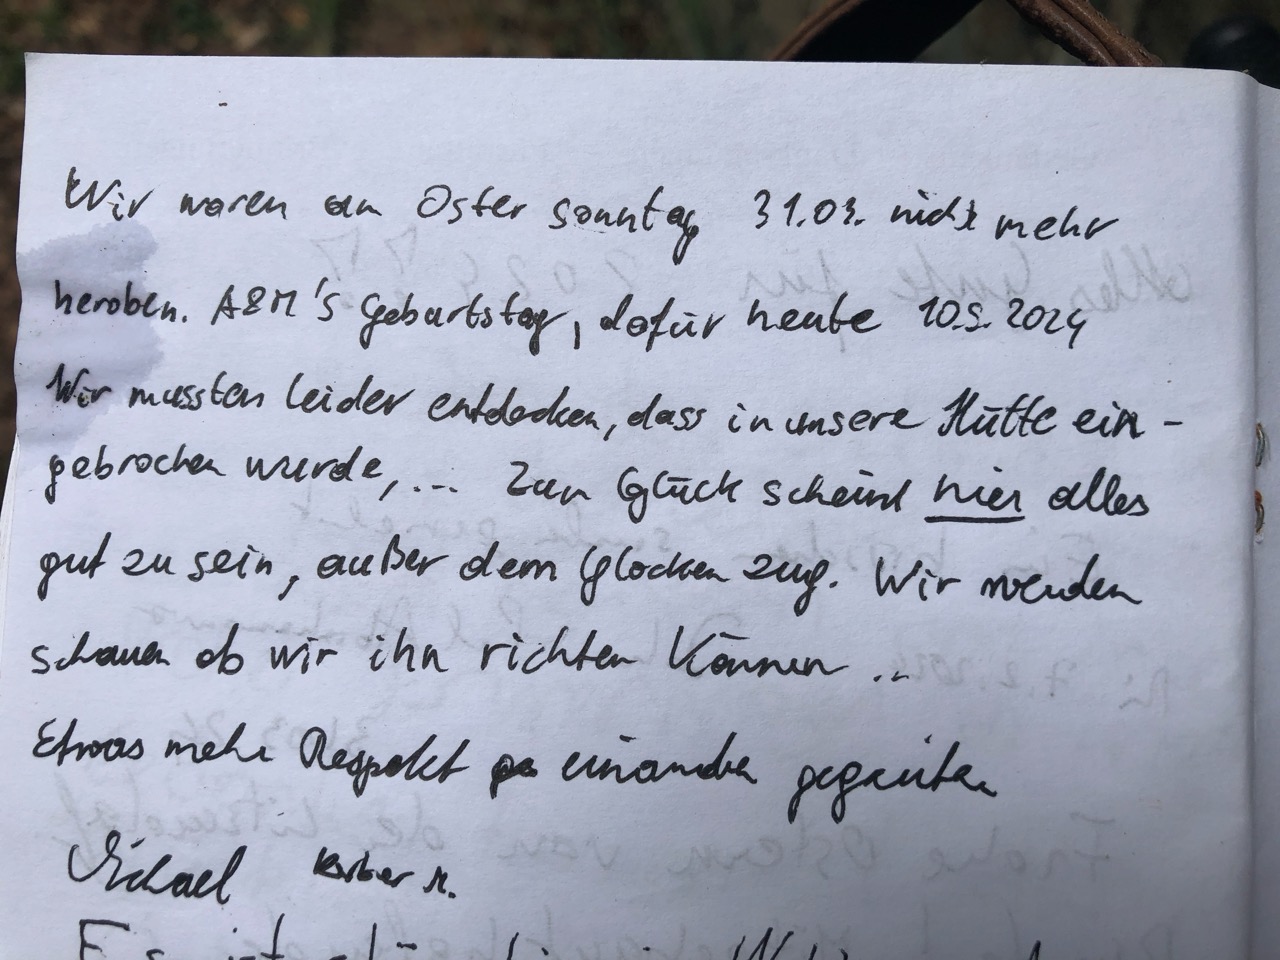 Wir waren am Oster sonntag 31.03. nicht mehr
heroben. A&M's Geburtstag, dafür heute 10.5.2024
Wir mussten leider entdecken, dass in unsere Hütte ein-
gebrochen wurde, ... Zum Glück scheint hier alles
gut zu sein, außer dem Glocken zug. Wir werden
schauen ob wir ihn richten können ...
Etwas mehr Respekt einander gegenüber
Michael
Es ist